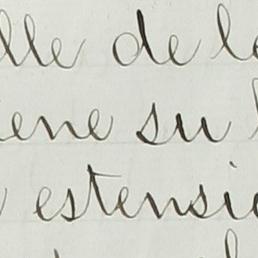 lle de l
ene su
estensi